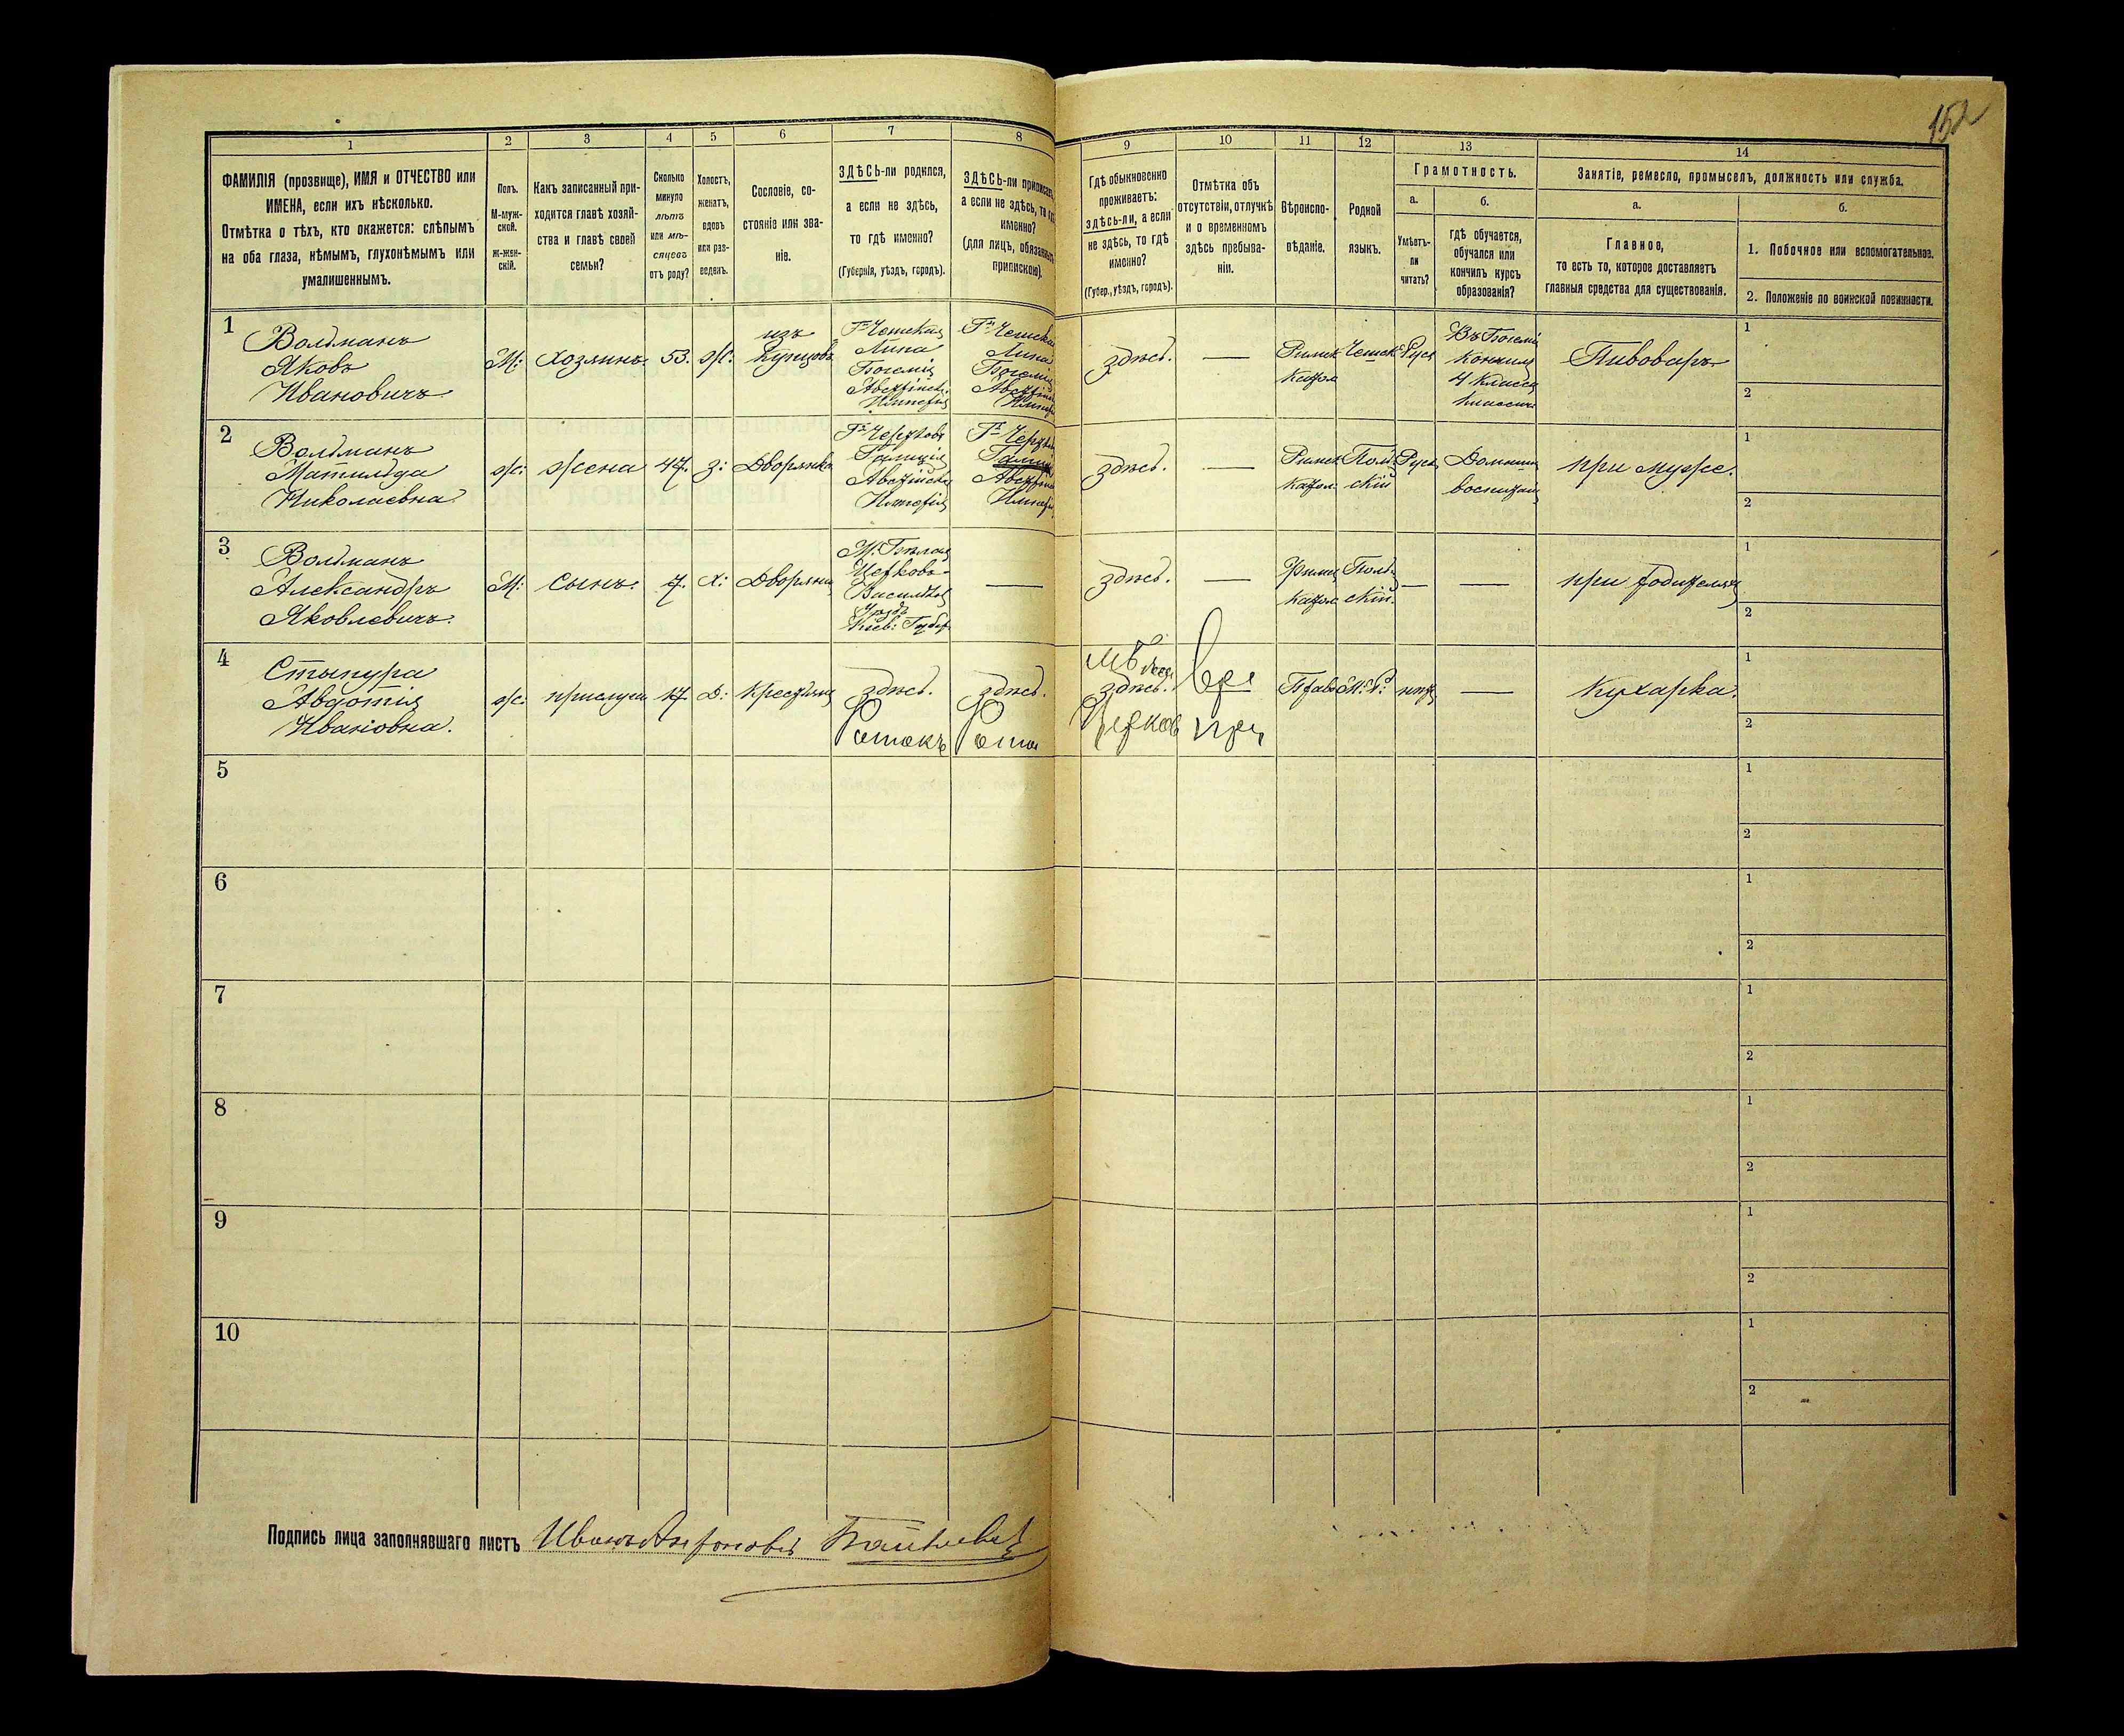 152
1
2
3
4
5
6
7
8
9
10
11
12
13
14
ФАМИЛІЯ (прозвище), ИМЯ и ОТЧЕСТВО или
ИМЕНА, если ихъ нѣсколько.
Отмѣтка о тѣхъ, кто окажется: слѣпымъ
на оба глаза, нѣмымъ, глухонѣмымъ или
умалишеннымъ.
Полъ.
М-муж-
ской.
Ж-жен-
скій.
Какъ записанный при-
ходится главѣ хозяй-
ства и главѣ своей
семьи?
Сколько
минуло
лѣтъ
или мѣ-
сяцевъ
отъ роду?
Холостъ,
женатъ,
вдовъ
или раз-
веденъ.
Сословіе, со-
стояніе или зва-
ніе.
ЗДѢСЬ-ли родился,
а если не здѣсь,
то гдѣ именно?
(Губернія, уѣздъ, городъ).
ЗДѢСЬ-ли приписанъ,
а если не здѣсь, то гдѣ
именно?
(для лицъ, обязанныхъ
припискою).
Гдѣ обыкновенно
проживаетъ:
здѣсь-ли, а если
не здѣсь, то гдѣ
именно?
(Губер., уѣздъ, городъ).
Отмѣтка объ
отсутствіи, отлучкѣ
и о временномъ
здѣсь пребыва-
ніи.
Вѣроиспо-
вѣданіе.
Родной
языкъ.
Грамотность.
а.
Умѣетъ-
ли
читать?
б.
гдѣ обучается,
обучался или
кончилъ курсъ
образованія?
Занятіе, ремесло, промыселъ, должность или служба.
а.
Главное,
то есть то, которое доставляетъ
главныя средства для существованія.
б.
1. Побочное или вспомогательное.
2. Положеніе по воинской повинности.
1
Вольманъ
Яковъ
Ивановичъ
М:
хозяинъ.
53.
ж:
изъ
Купцовъ
Гъ Чешская
Липа
Богемія
Австрійск:
Имперія
Гъ Чешска
Липа
Богемія
здѣсь.
—
Римск
Катол
Чешск
Руск
Въ Богеміи
Кончилъ
4 класса
классич:
Пивоваръ
1
2
2
Вольманъ
Матильда
Николаевна
ж:
жена
47.
з:
Дворянка
Галиція
Австрійска
Имперія
здѣсь.
—
Римск
Катол
Поль
скій
Руск
Домашн
воспитан
при мужѣ.
1
2
3
Вольманъ
Александръ
Яковлевичъ.
М:
сынъ.
7.
х:
Дворянин
М: Бѣлая
Церковь-
Васильков
Уѣзда
Кіев: Губер
—
здѣсь.
—
Римск
Катол
Поль
скій.
—
—
при родителях
1
2
4
Стыпура
Авдотія
Ивановна.
ж:
прислуга
17.
д:
Крестьян
здѣсь.
здѣсь.
здѣсь.
Церков
вре
Прав
М: Р:
нѣт
—
Кухарка.
1
2
5
1
2
6
1
2
7
1
2
8
1
2
9
1
2
10
1
2
Подпись лица заполнявшаго листъ